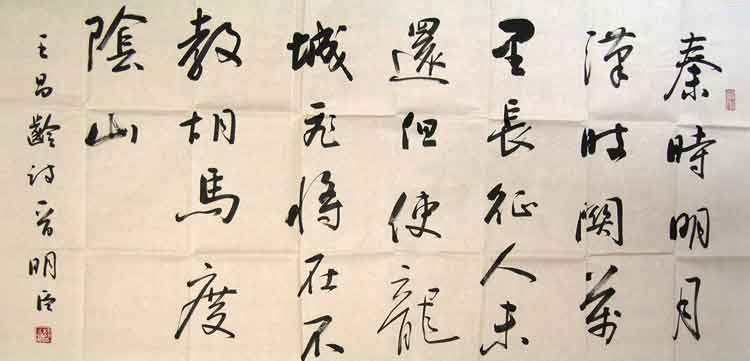 秦時明月
漢時關萬
里長征人未
還但使龍
城飛將在不
教胡馬度
陰山
王昌齡詩晉明